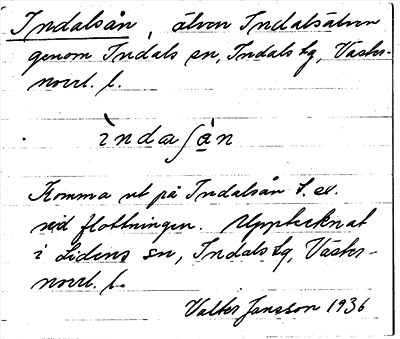 Indalsån, älven Indalsälven
genom Indals sn, Indals tg, Väster-
norrl. l.
ìndaʃå̀n
Komma ut på Indalsån t. ex.
vid flottningen. Upptecknat
i Lidens sn, Indals tg, Väster-
norrl. l.
Valter Jansson 1936